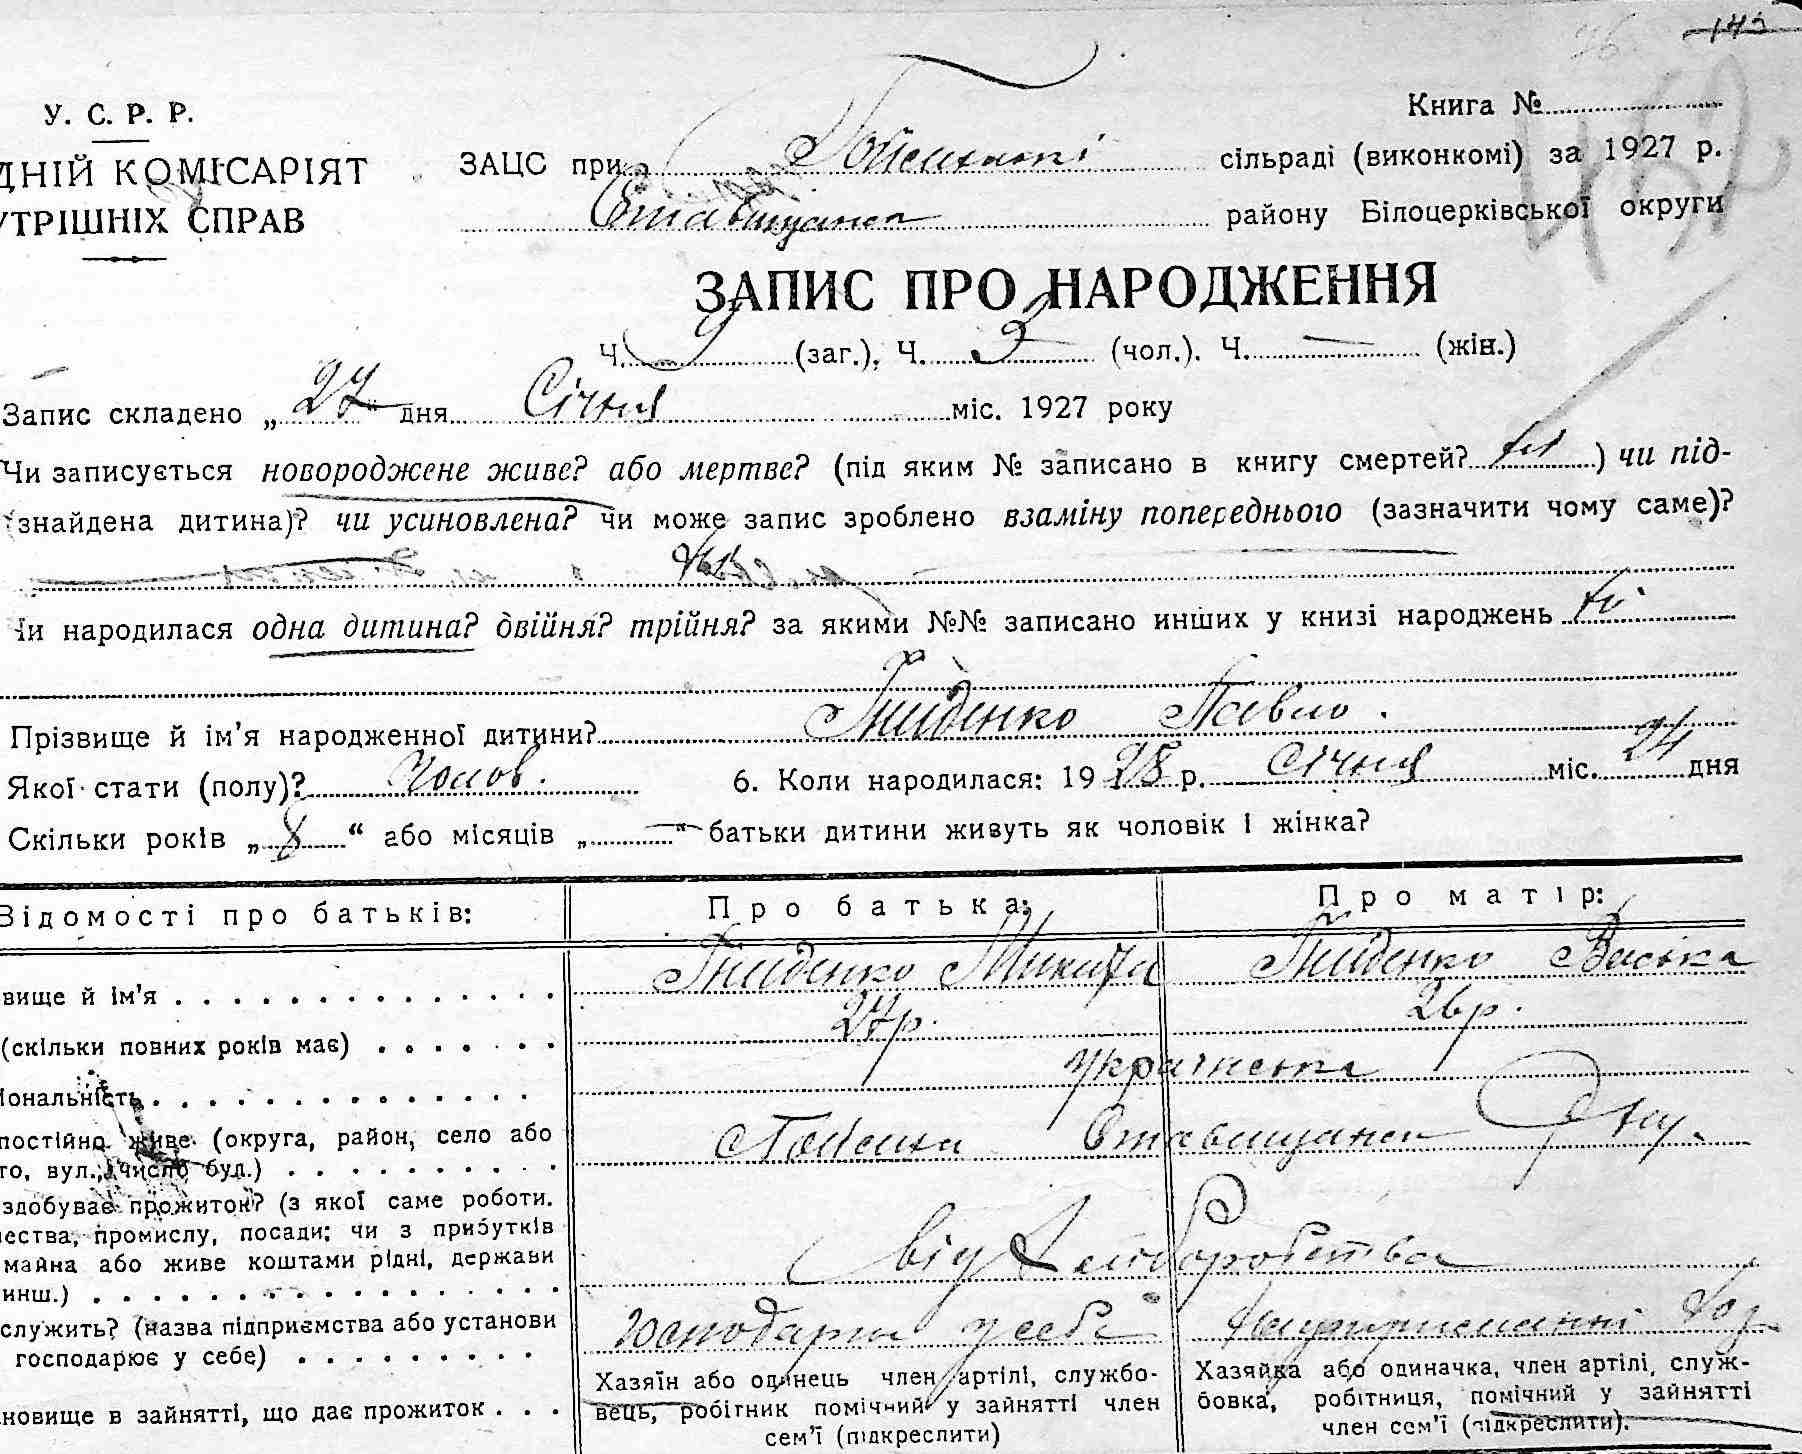 143
У. С. Р. Р.
Книга №
ДНІЙ КОМІСАРІЯТ
УТРІШНІХ СПРАВ
ЗАЦС при сільраді (виконкомі) за 1927 р.
Ставищанск району Білоцерківської округи
ЗАПИС ПРО НАРОДЖЕННЯ
Ч. 9 (заг.), Ч. 3 (чол.). Ч. — (жін.)
Запис складено „27" дня Січня міс. 1927 року
Чи записується новороджене живе? або мертве? (під яким № записано в книгу смертей? ) чи під-
знайдена дитина)? чи усиновлена? чи може запис зроблено взаміну попереднього (зазначити чому саме)?
Чи народилася одна дитина? двійня? трійня? за якими №№ записано инших у книзі народжень
Прізвище й ім'я народженної дитини? Гниденко Павло.
Якої стати (полу)? Чолов. 6. Коли народилася: 1928 р. Січня міс. 24 дня
Скільки років „8" або місяців „—" батьки дитини живуть як чоловік і жінка?
Відомості про батьків: Про батька: Про матір:
вище й ім'я Гниденко Микита Гниденко Васька
(скільки повних років має) 27 р. 26 р.
іональність українська
постійно живе (округа, район, село або
то, вул., число буд.) Ставищанск
здобуває прожиток? (з якої саме роботи.
ества, промислу, посади; чи з прибутків
майна або живе коштами рідні, держави
инш.) від хліборобства
служить? (назва підприємства або установи
господарює у себе) господарює у себе
новище в зайнятті, що дає прожиток
Хазяїн або одинець член артілі, службо-
вець, робітник помічний у зайнятті член
сем'ї (підкреслити)
Хазяйка або одиначка, член артілі, служ-
бовка, робітниця, помічний у зайнятті
член сем'ї (підкреслити).